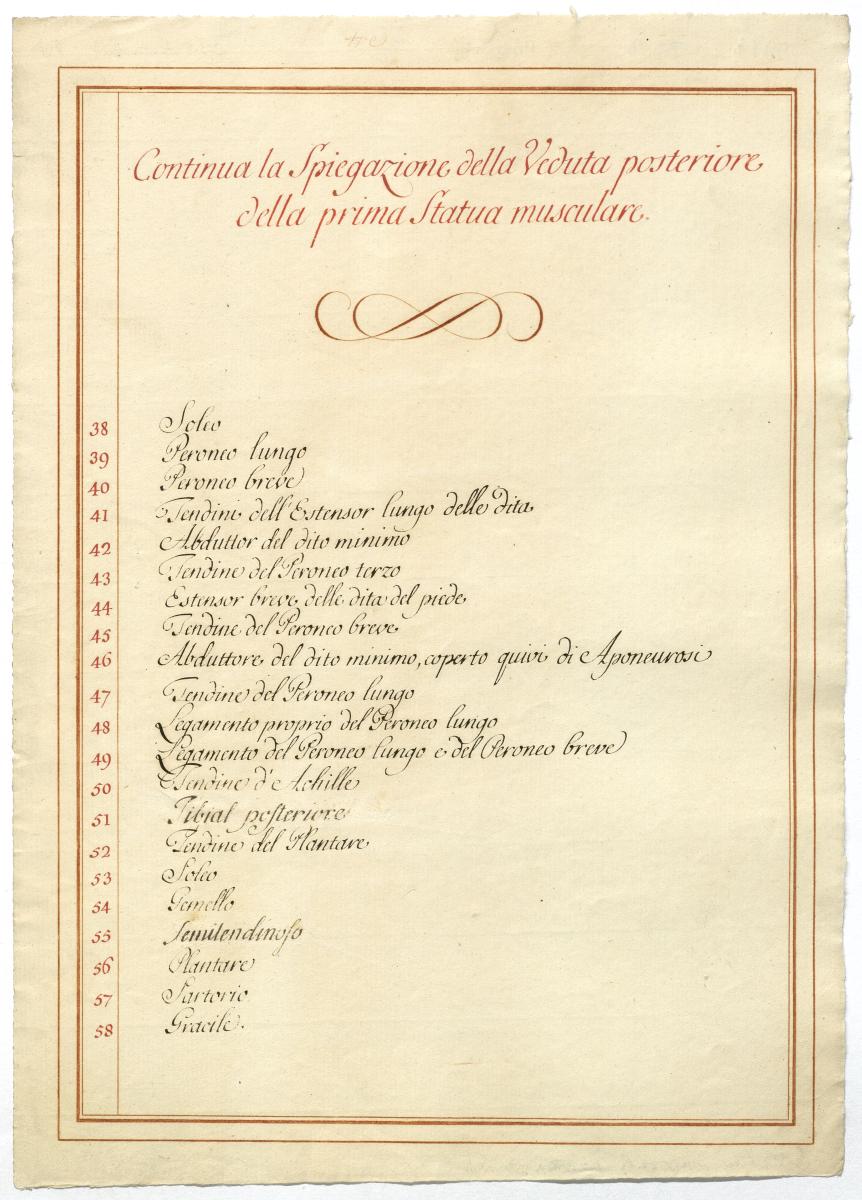 Continua la Spiegazione della Veduta posteriore
della prima Statua musculare.
38 Soleo
39 Peroneo lungo
40 Peroneo breve
41 Tendini dell'Estensor lungo delle dita
42 Abduttor del dito minimo
43 Tendine del Peroneo terzo
44 Estensor breve delle dita del piede
45 Tendine del Peroneo breve
46 Abduttore del dito minimo, coperto quivi di Aponeurosi
47 Tendine del Peroneo lungo
48 Legamento proprio del Peroneo lungo
49 Legamento del Peroneo lungo e del Peroneo breve
50 Tendine d'Achille
51 Tibial posteriore
52 Tendine del Plantare
53 Soleo
54 Gemello
55 Semitendinoso
56 Plantare
57 Sartorio
58 Gracile.